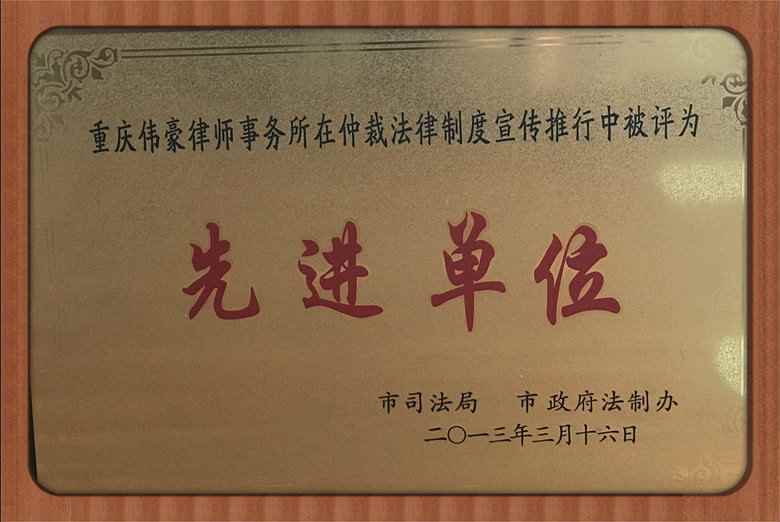 重庆伟豪律师事务所在仲裁法律制度宣传推行中被评为
先进单位
市司法局 市政府法制办
二〇一三年三月十六日